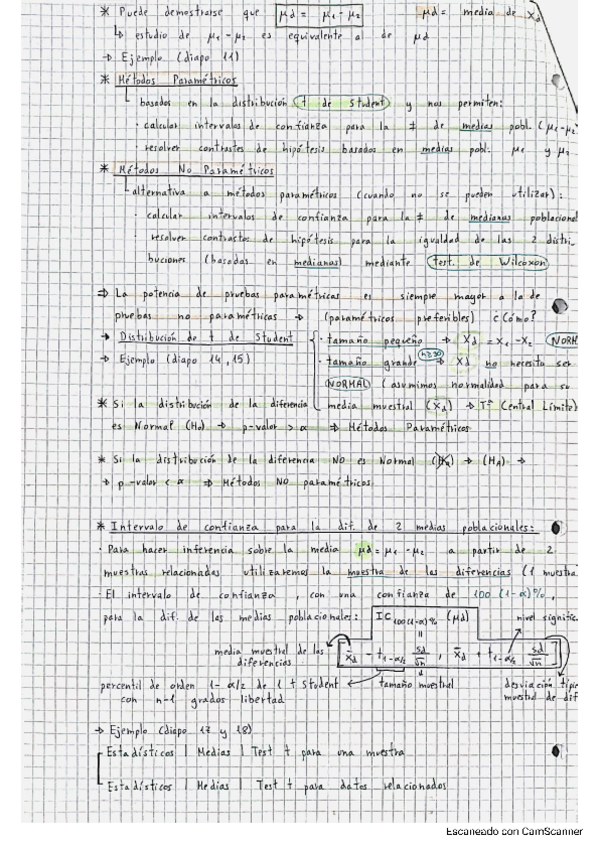 * Puede demostrarse que μd = μ1 - μ2 μd = media de Xd
↳ estudio de μ1 - μ2 es equivalente a de μd
→ Ejemplo (diapo 11)
* Métodos Paramétricos
basados en la distribución t de Student y nos permiten:
· calcular intervalos de confianza para la ≠ de medias pobl. (μ1-μ2
· resolver contrastes de hipótesis basados en medias pobl. μ1 y μ2
* Métodos No Paramétricos
alternativa a métodos paramétricos (cuando no se pueden utilizar):
· calcular intervalos de confianza para la ≠ de medianas poblacional
· resolver contrastes de hipótesis para la igualdad de las 2 distri-
buciones (basadas en medianas) mediante test. de Wilcoxon
⇒ La potencia de pruebas paramétricas es siempre mayor a la de
pruebas no paramétricas → (paramétricos preferibles) ¿Cómo?
→ Distribución de t de Student
· tamaño pequeño → Xd = X1 - X2 (NORM
→ Ejemplo (diapo 14, 15)
· tamaño grande n≥30 → Xd no necesita ser
NORMAL (asumimos normalidad para su
media muestral (x̄d) → Tª (Central Límite)
* Si la distribución de la diferencia
es Normal (H0) → p-valor > α ⇒ Métodos Paramétricos
* Si la distribución de la diferencia NO es Normal → (HA) →
→ p-valor < α ⇒ Métodos NO paramétricos
* Intervalo de confianza para la dif. de 2 medias poblacionales:
· Para hacer inferencia sobre la media μd = μ1 - μ2 a partir de 2
muestras relacionadas utilizaremos la muestra de las diferencias (1 muestra
· El intervalo de confianza, con una confianza de 100 (1-α)%,
para la dif. de las medias poblacionales: IC100(1-α)% (μd) nivel signific.
=
media muestral de las diferencias
[x̄d - t1-α/2 sd/√n , x̄d + t1-α/2 sd/√n]
percentil de orden 1-α/2 de 1 t Student con n-1 grados libertad
tamaño muestral
desviación típi
muestral de dif
→ Ejemplo (diapo 17 y 18)
Estadísticos | Medias | Test t para una muestra
Estadísticos | Medias | Test t para datos relacionados
Escaneado con CamScanner